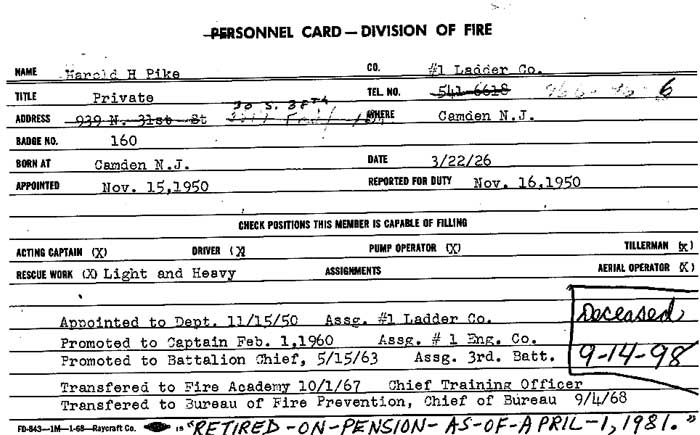 PERSONNEL CARD — DIVISION OF FIRE
NAME Harold H Pike CO. #1 Ladder Co.
TITLE Private TEL. NO. 541-6618
30 S. 38TH
ADDRESS 939 N. 31st St WHERE Camden N.J.
BADGE NO. 160
BORN AT Camden N.J. DATE 3/22/26
APPOINTED Nov. 15,1950 REPORTED FOR DUTY Nov. 16,1950
CHECK POSITIONS THIS MEMBER IS CAPABLE OF FILLING
ACTING CAPTAIN (X) DRIVER (X) PUMP OPERATOR (X) TILLERMAN (x)
RESCUE WORK (X) Light and Heavy ASSIGNMENTS AERIAL OPERATOR (X)
Appointed to Dept. 11/15/50 Assg. #1 Ladder Co.
Promoted to Captain Feb. 1,1960 Assg. # 1 Eng. Co.
Promoted to Battalion Chief, 5/15/63 Assg. 3rd. Batt.
Deceased
9-14-98
Transfered to Fire Academy 10/1/67 Chief Training Officer
Transfered to Bureau of Fire Prevention, Chief of Bureau 9/4/68
FD-843—1M—1-68—Raycraft Co. "RETIRED-ON-PENSION-AS-OF-APRIL-1, 1981."